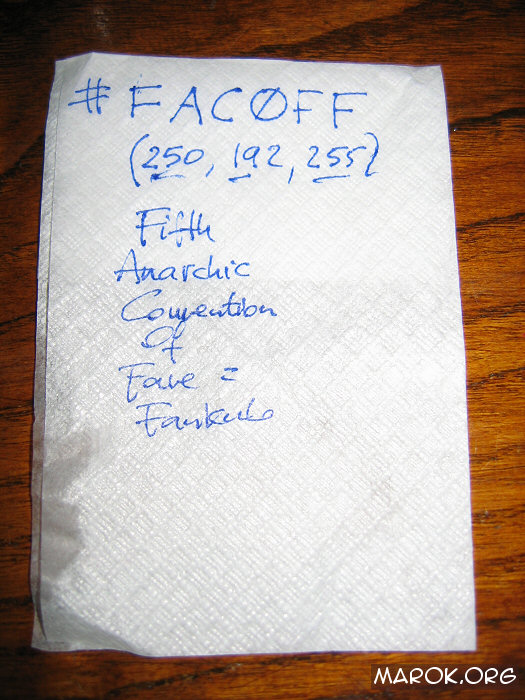 #FAC0FF
(250, 192, 255)
Fifth
Anarchic
Convention
Of
Fave =
Fankulo
MAROK.ORG